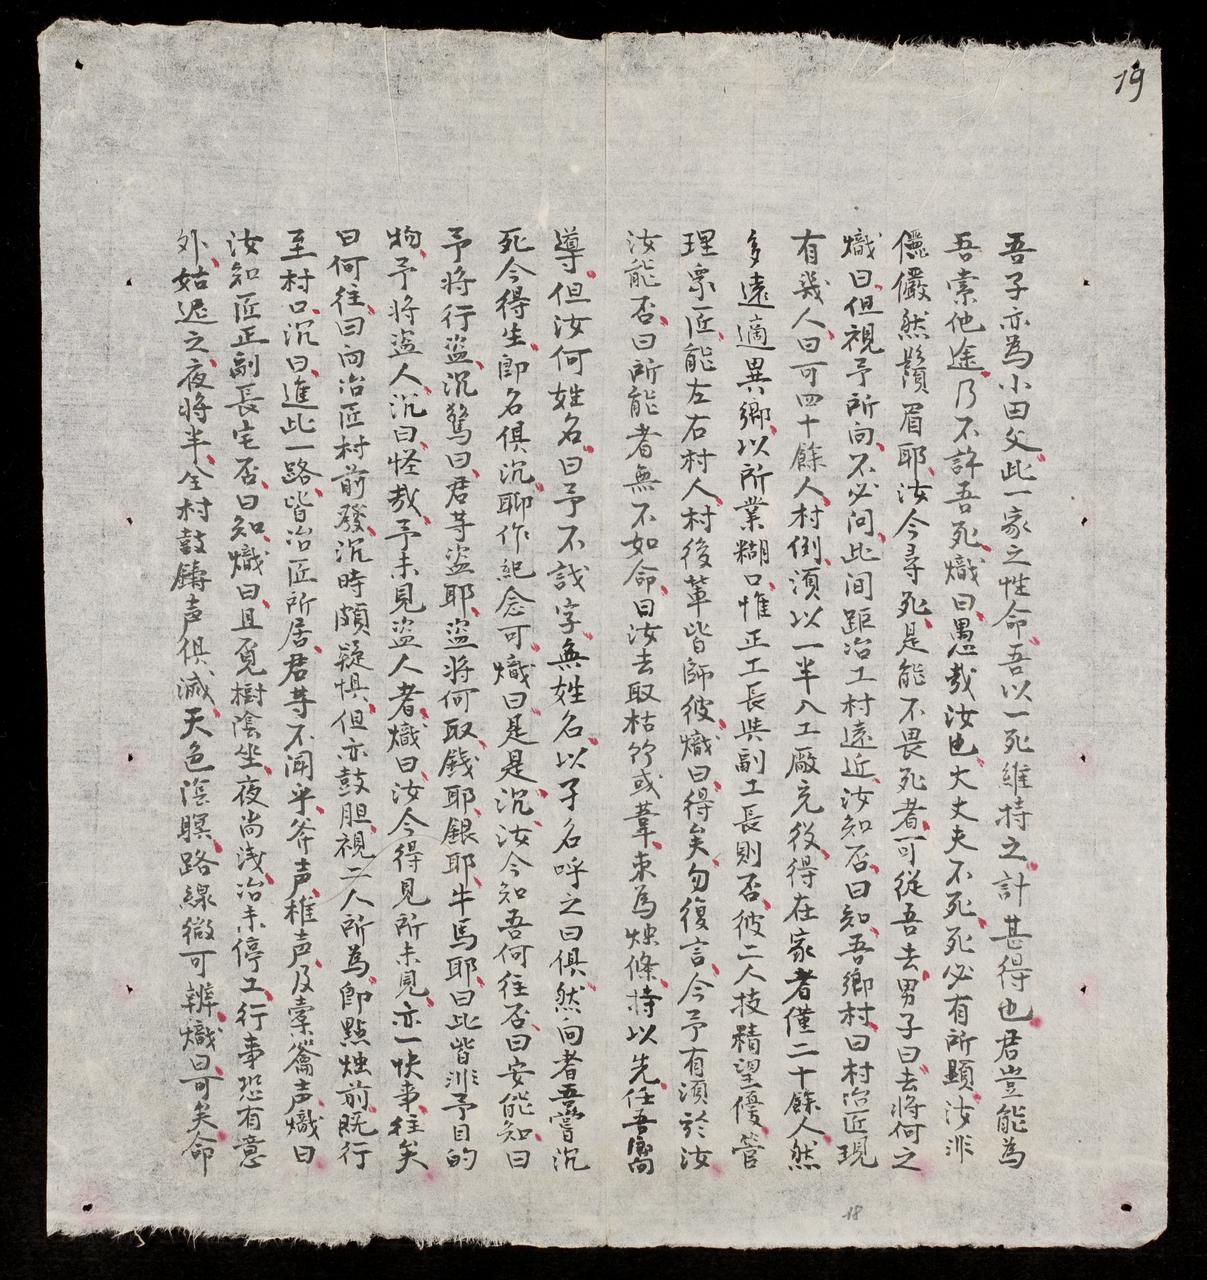 19
吾子亦為小田父此一家之性命吾以一死維持之計甚得也君豈能為
吾索他途乃不許吾死熾曰愚哉汝也大丈夫不死死必有所顯汝非
儼然鬚眉耶汝今尋死是能不畏死者可從吾去男子曰去將何之
熾曰但視予所向不必问此间距冶工村遠近汝知否曰知吾鄉村曰村冶匠現
有幾人曰可四十餘人村例須以一半入工廠充役得在家者僅二十餘人然
多遠適異鄉以所業糊口惟正工長與副工長則否彼二人技精望優管
理眾匠能左右村人村後輩皆師彼熾曰得矣勿復言今予有須於汝
汝能否曰所能者無不如命曰汝去取枯竹或葦束為燭條持以先任吾嚮
導但汝何姓名曰予不識字無姓名以子名呼之曰俱然向者吾嘗沉
死今得生即名俱沉聊作紀念可熾曰是是沉汝今知吾何往否曰安能知曰
予將行盜沉驚曰君等盜耶盜將何取錢耶銀耶牛馬耶曰此皆非予目的
物予將盜人沉曰怪哉予未見盜人者熾曰汝今得見所未見亦一快事往矣
曰何往曰向冶匠村前發沉時頗疑惧但亦鼓胆視二人所為即點燭前既行
至村口沉曰進此一路皆冶匠所居君等不闻乎斧声椎声及橐籥声熾曰
汝知匠正副長宅否曰知熾曰且覓樹陰坐夜尚浅冶未停工行事恐有意
外姑遲之夜將半全村鼓鑄声俱滅天色溟暝路線微可辨熾曰可矣命
18